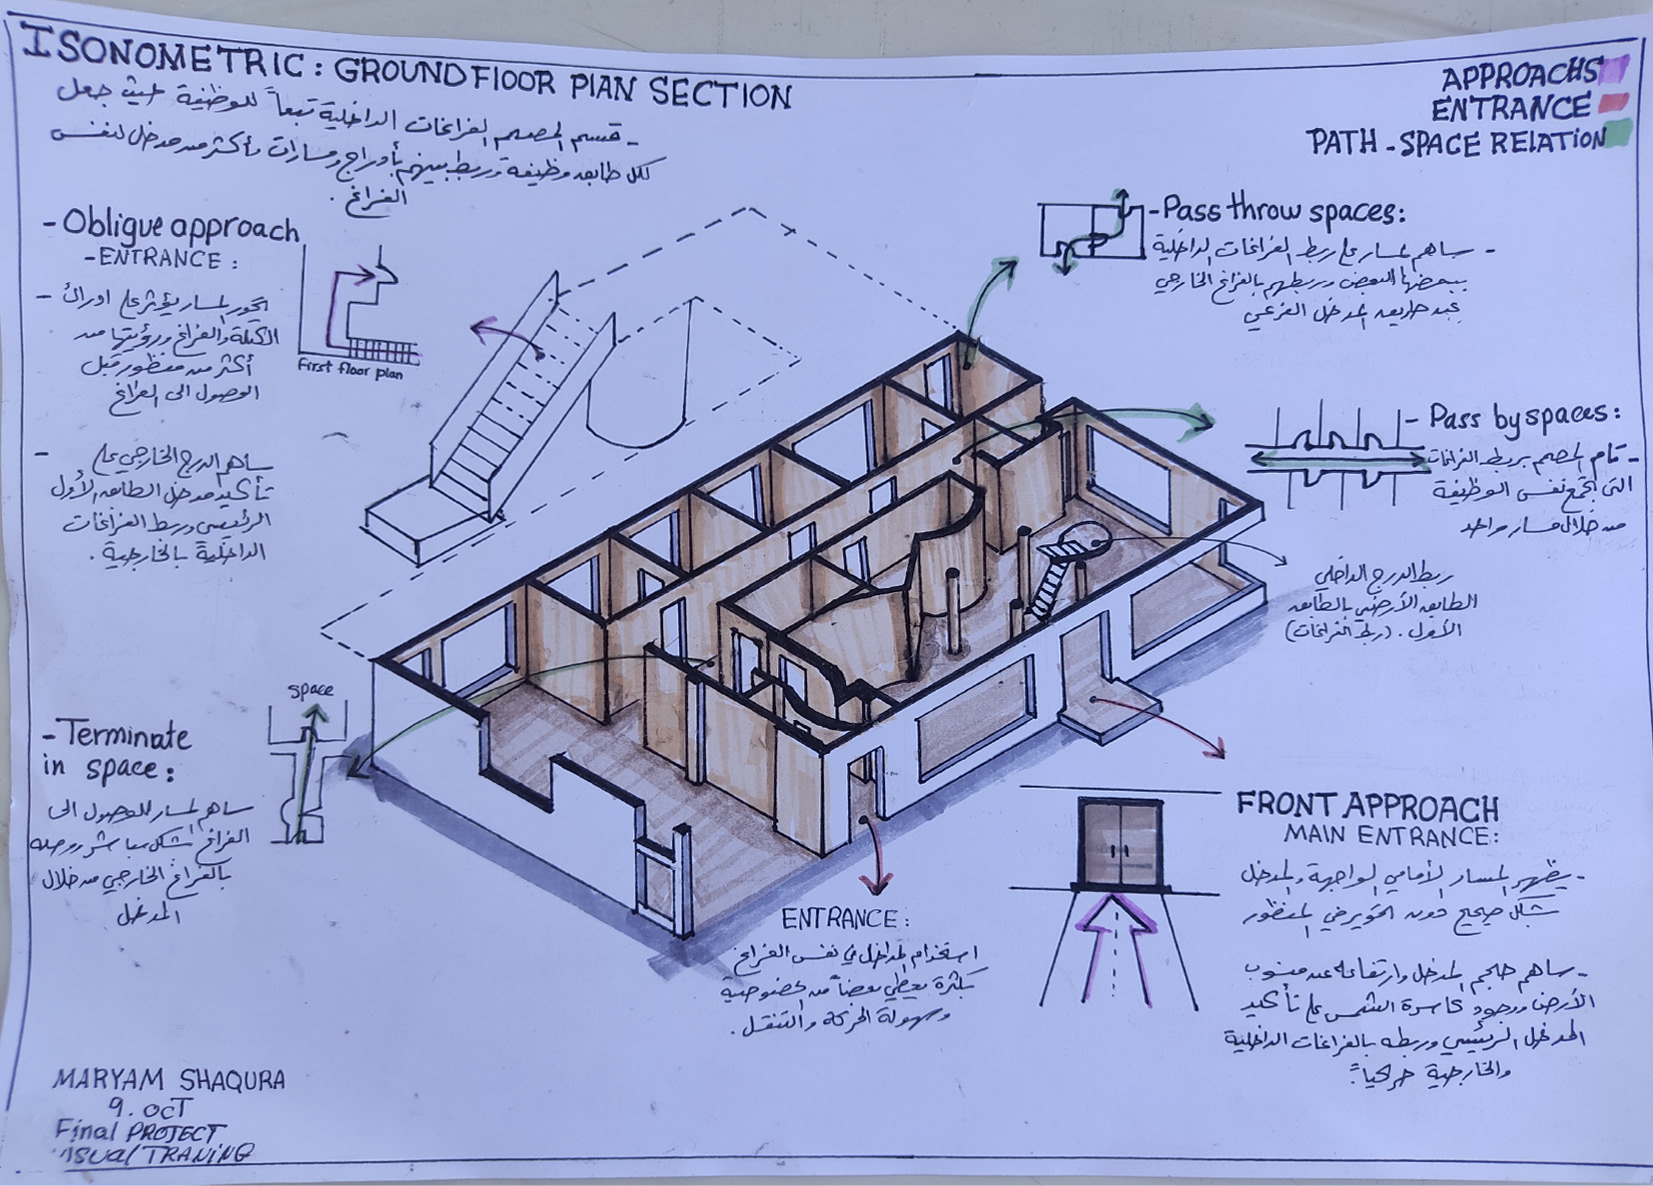 ISONOMETRIC: GROUND FLOOR PLAN SECTION
- قسم المصمم الفراغات الداخلية تبعاً للوظيفة حيث جعل
لكل طابق وظيفة وربط بينهم بأدراج ومسارات وأكثر من مدخل لنفس
الفراغ.
APPROACHS
ENTRANCE
PATH - SPACE RELATION
- Oblique approach
- ENTRANCE:
- تحور المسار يؤثر على ادراك
الكتلة والفراغ ورؤيتها من
أكثر من منظور قبل
الوصول الى الفراغ
First floor plan
- ساهم الدرج الخارجي على
تأكيد مدخل الطابق الأول
الرئيسي وربط الفراغات
الداخلية بالخارجية.
- Terminate
in space:
space
ساهم المسار للوصول الى
الفراغ بشكل مباشر ووصله
بالفراغ الخارجي من خلال
المدخل
- Pass throw spaces:
- ساهم المسار على ربط الفراغات الداخلية
ببعضها البعض وربطهم بالفراغ الخارجي
عن طريق المدخل الفرعي
- Pass by spaces:
- قام المصمم بربط الفراغات
التي تجمع نفس الوظيفة
من خلال مسار واحد
ربط الدرج الداخلي
الطابق الأرضي بالطابق
الأول. (ربط الفراغات)
FRONT APPROACH
MAIN ENTRANCE:
- يظهر المسار الأمامي الواجهة والمدخل
بشكل صحيح دون التحوير في المنظور
- ساهم حجم المدخل وارتفاعه عن منسوب
الأرض ووجود كاسرة الشمس على تأكيد
المدخل الرئيسي وربطه بالفراغات الداخلية
والخارجية حركياً.
ENTRANCE:
استخدام المداخل في نفس الفراغ
بكثرة يعطي بعضاً من الخصوصية
وسهولة الحركة والتنقل.
MARYAM SHAQURA
9. OCT
Final PROJECT
VISUAL TRANING